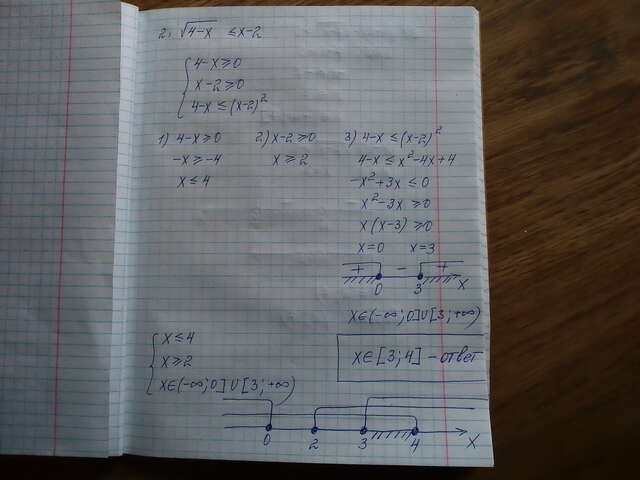 2. √4-x ≤ x-2
4-x ≥ 0
x-2 ≥ 0
4-x ≤ (x-2)²
1) 4-x ≥ 0
-x ≥ -4
x ≤ 4
2) x-2 ≥ 0
x ≥ 2
3) 4-x ≤ (x-2)²
4-x ≤ x²-4x+4
-x²+3x ≤ 0
x²-3x ≥ 0
x(x-3) ≥ 0
x=0 x=3
+ - +
0 3 x
x∈(-∞;0]∪[3;+∞)
x ≤ 4
x ≥ 2
x∈(-∞;0]∪[3;+∞)
x∈[3;4] - ответ
0 2 3 4 x